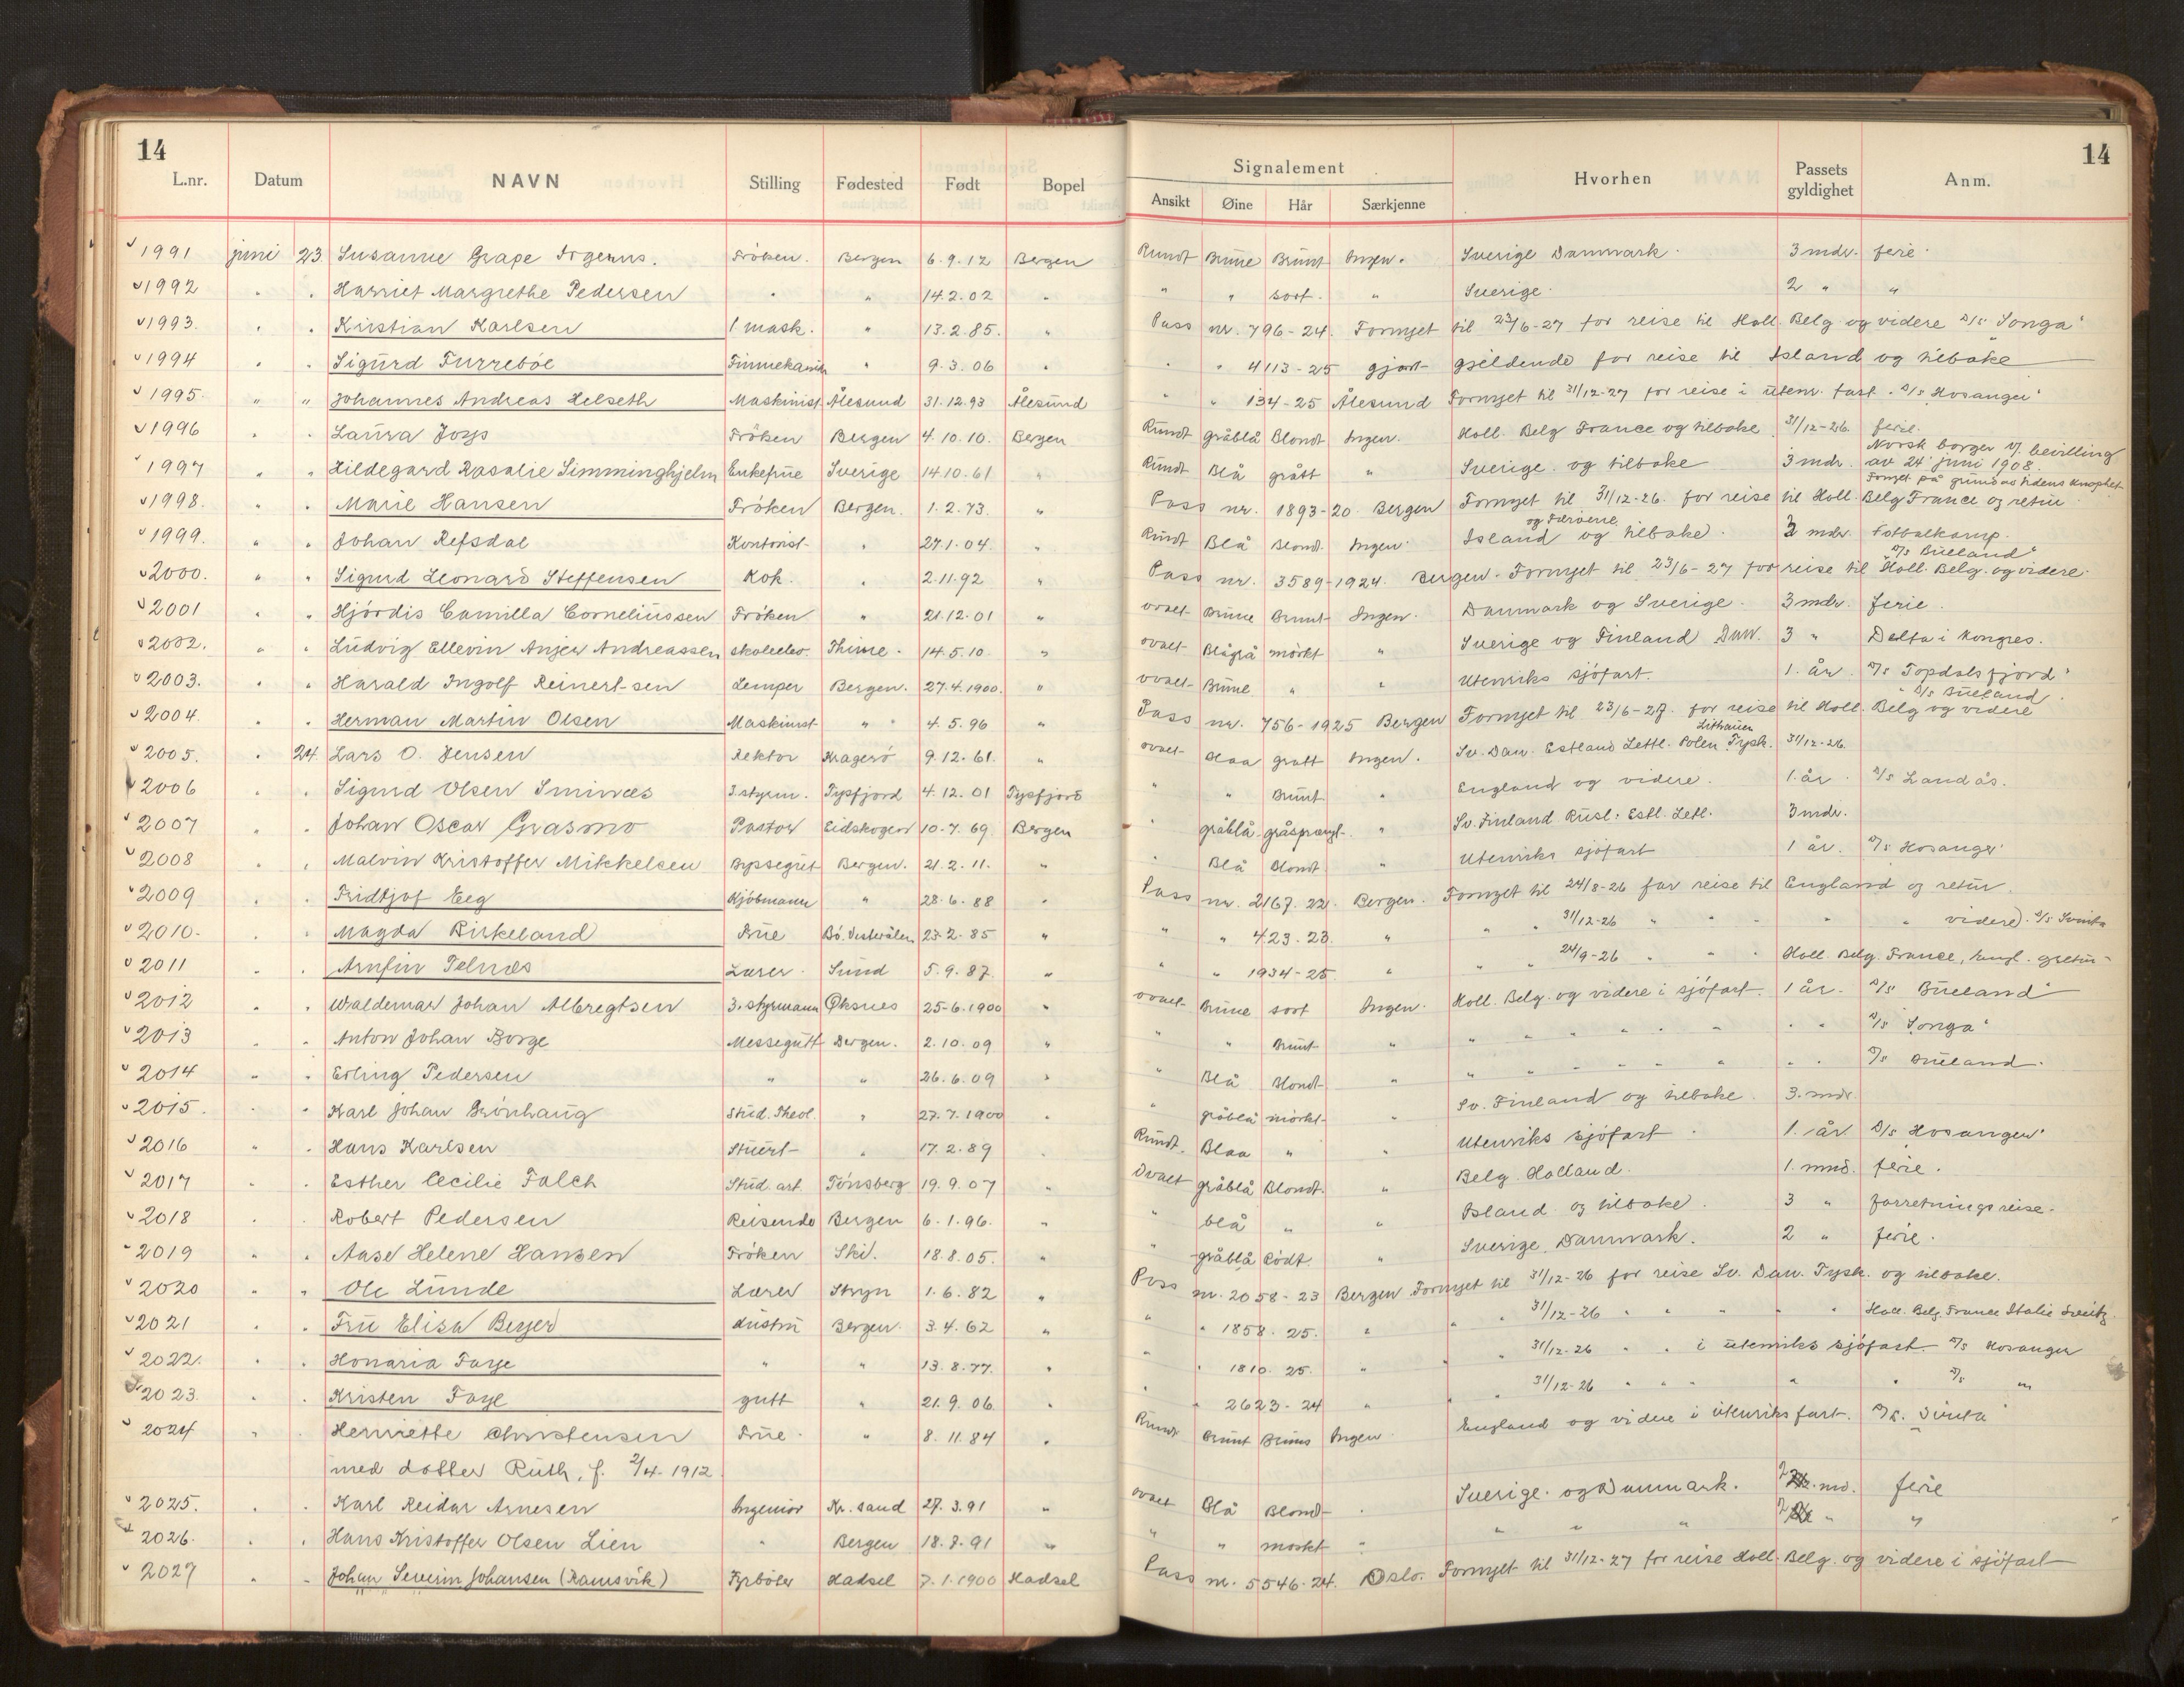 14
L.nr. Datum NAVN Stilling Fødested Født Bopel
1991 juni 23. Susanne Grape Irgens. Fröken. Bergen 6.9.12 Bergen
1992 " " Harriet Margrethe Pedersen " " 14.2.02 "
1993. " " Kristian Karlsen 1 mask. " 13.2.85. "
1994 " " Sigurd Furrebøe " 9.3.06 "
1995. " " Johannes Andreas Helseth Maskinist Ålesund 31.12.93 Ålesund
1996 " " Laura Joys Fröken Bergen 4.10.10. Bergen
1997 " " Hildegard Rosalie Simminghjelm Enkefrue Sverige 14.10.61 "
1998. " " Marie Hansen Fröken Bergen. 1.2.73. "
1999. " " Johan Refsdal Kontorist " 27.1.04. "
2000. " " Sigurd Leonard Steffensen Kok. " 2.11.92 "
2001 " " Hjördis Camilla Corneliussen Fröken " 21.12.01 "
2002. " " Ludvig Ellevin Anjer Andreassen skoleelev. Thime. 14.5.10 "
2003. " " Harald Ingolf Reinert-sen Lemper Bergen. 27.4.1900. "
2004. " " Herman Martin Olsen Maskinist " " 4.5.96 "
2005. " 24. Lars O. Jensen Rektor Kragerö 9.12.61. "
2006 " " Sigurd Olsen 3. styrm. Tysfjord 4.12.01 Tysfjord
2007 " " Johan Oscar Grasmo Pastor Eidskogen 10.7.69. Bergen
2008 " " Malvin Kristoffer Mikkelsen Byssegut Bergen. 21.2.11. "
2009 " " Fridtjof Eeg Kjöbmann " 28.6.88 "
2010. " " Magda Birkeland Frue Bö. Vesterålen 23.2.85 "
2011 " " Arnfin Telnæs Lærer. Sund 5.9.87. "
2012 " " Waldemar Johan Albregtsen 3. styrmann Øksnes 25-6.1900 "
2013 " " Anton Johan Borge Messegutt Bergen. 2.10.09 "
2014 " " Erling Pedersen " " 26.6.09 "
2015. " " Karl Johan Grönhaug Stud. Theol. " 27.7.1900 "
2016 " " Hans Karlsen Stuert " 17.2.89 "
2017 " " Esther Cecilie Falch Stud. art. Tönsberg 19.9.07 "
2018 " " Robert Pedersen Reisende Bergen 6.1.96. "
2019 " " Aase Helene Hansen Fröken Ski. 18.8.05. "
2020 " " Ole Lunde Lærer Stryn 1.6.82 "
2021 " " Fru Elisa Beyer Hustru Bergen. 3.4.62 "
2022. " " Honoria Faye " " 13.8.77. "
2023. " " Kristen Faye gutt " 21.9.06. "
2024 " " Henriette Christensen Frue. " 8.11.84 "
med dotter Ruth, f. 2/4-1912
2025. " " Karl Reidar Arnesen Ingeniör Kr. sand 27.3.91 "
2026. " " Hans Kristoffer Olsen Lien " Bergen 18.8.91 "
2027 " " Johan Severin Johansen (Ramsvik) Fyrböter Hadsel 7.1.1900 Hadsel
14
Signalement Hvorhen Passets gyldighet Anm.
Ansikt Øine Hår Særkjenne
Rundt Brune Brunt Ingen. Sverige Danmark. 3 mdr. ferie.
" " sort. " Sverige. 2 " "
Pass nr. 796-24. Fornyet til 23/6-27 for reise til Holl. Belg og videre D/s "Songa"
" " 4113-25 gjort gjeldende for reise til Island og tilbake
" " 134-25 Ålesund Fornyet til 31/12-27 for reise i utenr. fart. D/s "Hosanger"
Rundt gråblå Blondt Ingen. Holl. Belg France og tilbake 31/12-26. ferie.
Norsk borger if. bevilling
Rundt Blå grått " Sverige. og tilbake 3 mdr. av 24 juni 1908.
Fornyet på grund av tidens knaphet
Pass nr. 1893-20. Bergen Fornyet til 31/12-26. for reise til Holl. Belg France og retur
og Færöerne
Rundt Blå Blondt. Ingen. Island og tilbake. 3 mdr. Fotbalkamp.
D/s "Bueland"
Pass nr. 3589-1924. Bergen. Fornyet til 23/6-27 for reise til Holl. Belg. og videre.
ovalt Brune Brunt Ingen. Danmark og Sverige. 3 mdr. ferie.
ovalt Blågrå mörkt " Sverige og Finland Dan. 3 " Delta i Kongres.
ovalt Brune " " Utenriks sjöfart. 1. år. D/s "Topdalsfjord"
"D/s Bueland".
Pass nr. 756-1925 Bergen Fornyet til 23/6-27. for reise til Holl. Belg og videre
Lithauen
ovalt Blaa graatt Ingen. Sv. Dan. Estland Lettl. Polen Tysk. 31/12-26.
" " Brunt " England og videre. 1. år. D/s Landås.
" gråblå gråsprængt. " Sv. Finland Rusl. Estl. Letl. 3 mdr.
" Blå Blondt " Utenriks sjöfart 1 år. D/s Hosanger"
Pass nr. 2167. 22. Bergen. Fornyet til 24/8-26 for reise til England og retur.
" " 423. 23. " " " 31/12-26 " " " " " videre. D/s Sverta
" " 1934-25. " " " 24/9-26 " " " Holl. Belg. France, Engl. og retur
ovalt Brune sort Ingen. Holl. Belg. og videre i sjöfart. 1 år. D/s "Bueland"
" " Brunt " " " " " " " " D/s "Songa"
" Blå Blondt " " " " " " " " D/s Bueland.
" gråblå mörkt " Sv. Finland og tilbake. 3. mdr
Rundt. Blaa " " Utenriks sjöfart. 1. år. D/s Hosanger"
Ovalt gråblå Blondt. " Belg. Holland. 1. mnd. ferie.
" blå " " Island og tilbake. 3 " forretningsreise.
" gråblå rödt. " Sverige. Danmark. 2 " ferie.
Pass nr. 2058-23 Bergen Fornyet til 31/12-26 for reise Sv. Dan. Tysk. og tilbake.
" " 1858. 25. " " " 31/12-26 " " " " " Holl. Belg. France Italie Sveitz.
" " 1810. 25. " " " 31/12-26 " " i utenriks sjöfart D/s Hosanger
" " 2623-24 " " " 31/12-26 " " " " " D/s "
Rundt Brunt Bruns Ingen. England og videre i utenriks fart. D/s.
ovalt Blå Blondt " Sverige. og Danmark. 2 md. ferie
" " morkt " " " " 2 " "
Pass nr. 5546. 24. Oslo. Fornyet til 31/12-27 for reise Holl. Belg. og videre i sjöfart